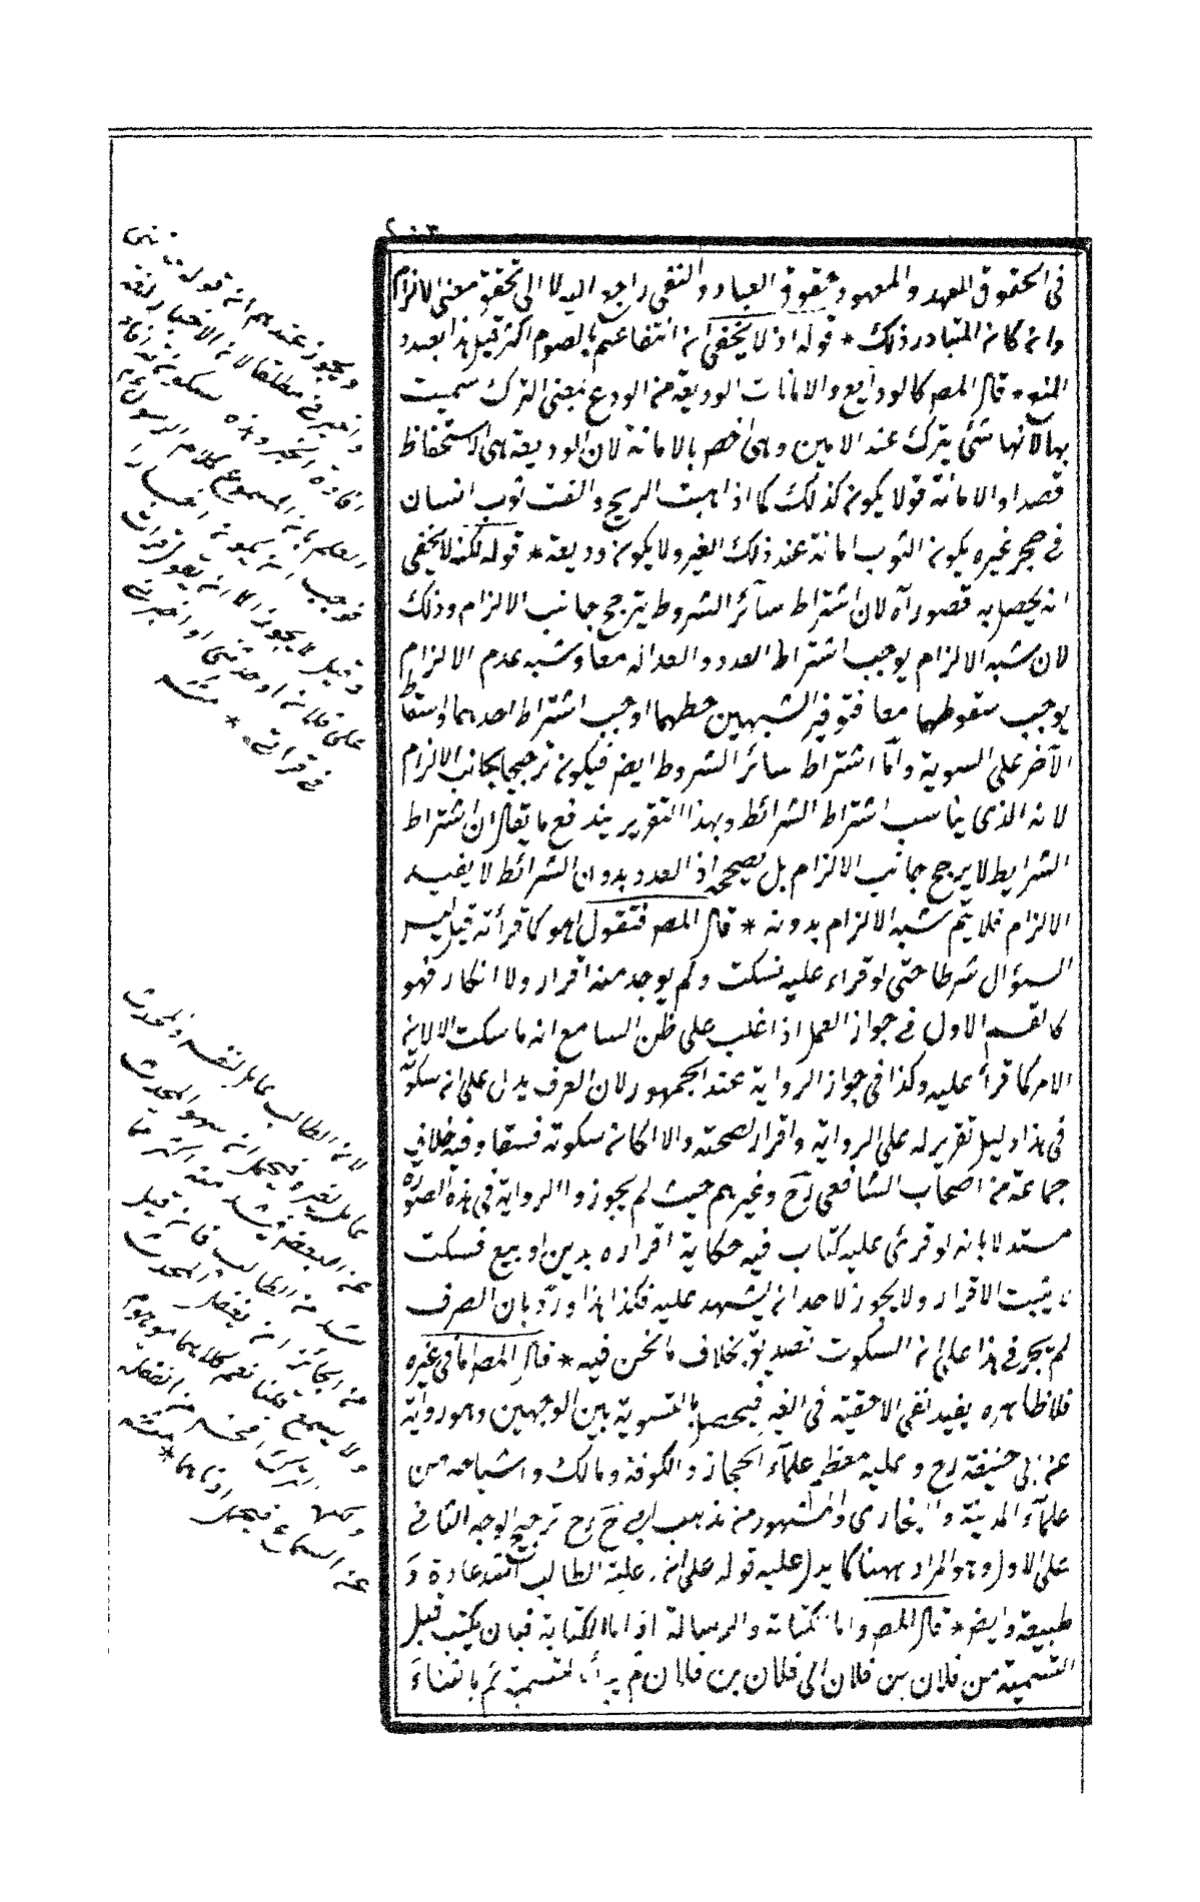 في الحقوق المعهد والمعهود حقوق العباد والنفي راجع اليه لا الى تحقق معنى الالزام
وان كان المتبادر ذلك * قوله اذ لا يخفى ان انتفاعهم بالصوم اكثر قيل هذا بصدد
المنع * قال المص كالودايع والامانات الوديعة من الودع بمعنى الترك سميت
بها لانها شئ يترك عند الامين وهى اخص بالامانة لان الوديعة هى الاستحفاظ
قصدا والامانة قد لا يكون كذلك كما اذا هبت الريح والقت ثوب انسان
في حجر غيره يكون الثوب امانة عند ذلك الغير ولا يكون وديعة * قوله لكنه لا يخفى
انه يحصل به قصور آه لان اشتراط سائر الشروط يترجح جانب الالزام وذلك
لان شبه الالزام يوجب اشتراط العدد والعدالة معا وشبه عدم الالزام
يوجب سقوطهما معا فتوفير الشبهين حظهما اوجب اشتراط احدهما واسقاط
الآخر على السوية واما اشتراط سائر الشروط ايض فيكون ترجيحا لجانب الالزام
لانه الذى يناسب اشتراط الشرائط وبهذا التقرير يندفع ما يقال ان اشتراط
الشرايط لا يرجح جانب الالزام بل يصححه اذ العدد بدون الشرائط لا يفيد
الالزام فلا يتم شبه الالزام بدونه * قال المص فتقول اهو كما قرأته قيل ليس
السؤال شرطا حتى لو قراء عليه فسكت ولم يوجد منه اقرار ولا انكار فهو
كالقسم الاول في جواز العمل اذا غلب على ظن السامع انه ما سكت الا لان
الامر كما قرأ عليه وكذا في جواز الرواية عند الجمهور لان العرف يدل على ان سكوته
في هذا دليل تقرير له على الرواية واقرار لصحته والا لكان سكوته فسقا وفيه خلاف
جماعة من اصحاب الشافعى رح وغيرهم حيث لم يجوزوا الرواية في هذه الصورة
مستدلا بانه لو قرئ عليه كتاب فيه حكاية اقراره بدين او بيع فسكت
لا يثبت الاقرار ولا يجوز لاحد ان يشهد عليه فكذا هذا ورد بان العرف
لم يجر في هذا على ان السكوت تصديق بخلاف ما نحن فيه * قال المص اما في غيره
فلا ظاهره يفيد نفى الاحقية في الغير فيحصل بالتسوية بين الوجهين وهو رواية
عن ابى حنيفة رح وعليه معظم علماء الحجاز والكوفة ومالك واشياعه من
علماء المدينة والبخارى والمشهور من مذهب ابى ح رح ترجيح الوجه الثانى
على الاول وهو المراد ههنا كما يدل عليه قوله على ان رعاية الطالب اشد عادة و
طبيعة وايض * قال المص واما الكتابة والرسالة اذ اما الكتابة فبان يكتب قبل
التسمية من فلان بن فلان الى فلان بن فلان ثم يبدأ بالتسمية ثم بالثناء
ويجوز عندهم ان قوله
واخبرنى مطلقا لان الاخبار لغة
افادة الخبر وهذه سكوته قد افاد
العلم بان المسموع كلام الرسول
فوجب ان يكون اخبارا
وقيل لا يجوز الا ان يقول قرأت
على فلان او حدثنى او اخبرنى
في قراءتى * منه
لان الطالب عامل لنفسه والمحدث
عامل لغيره فيحتمل ان سهو المحدث
عن البعض فيشد منه اكثر مما
يشد من الطالب فان قيل
من الجائز ان يغفل المحدث
ولا يسمع قلنا نعم كلاهما موهوم
عن السماع فيحتمل ادناهما * منه